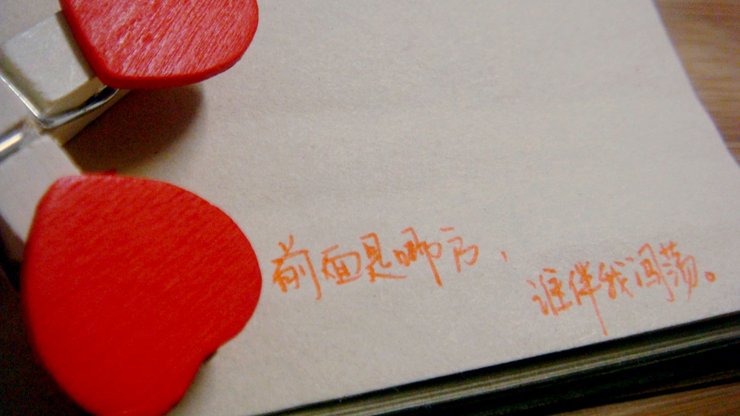 前面是哪方，
谁伴我闯荡。